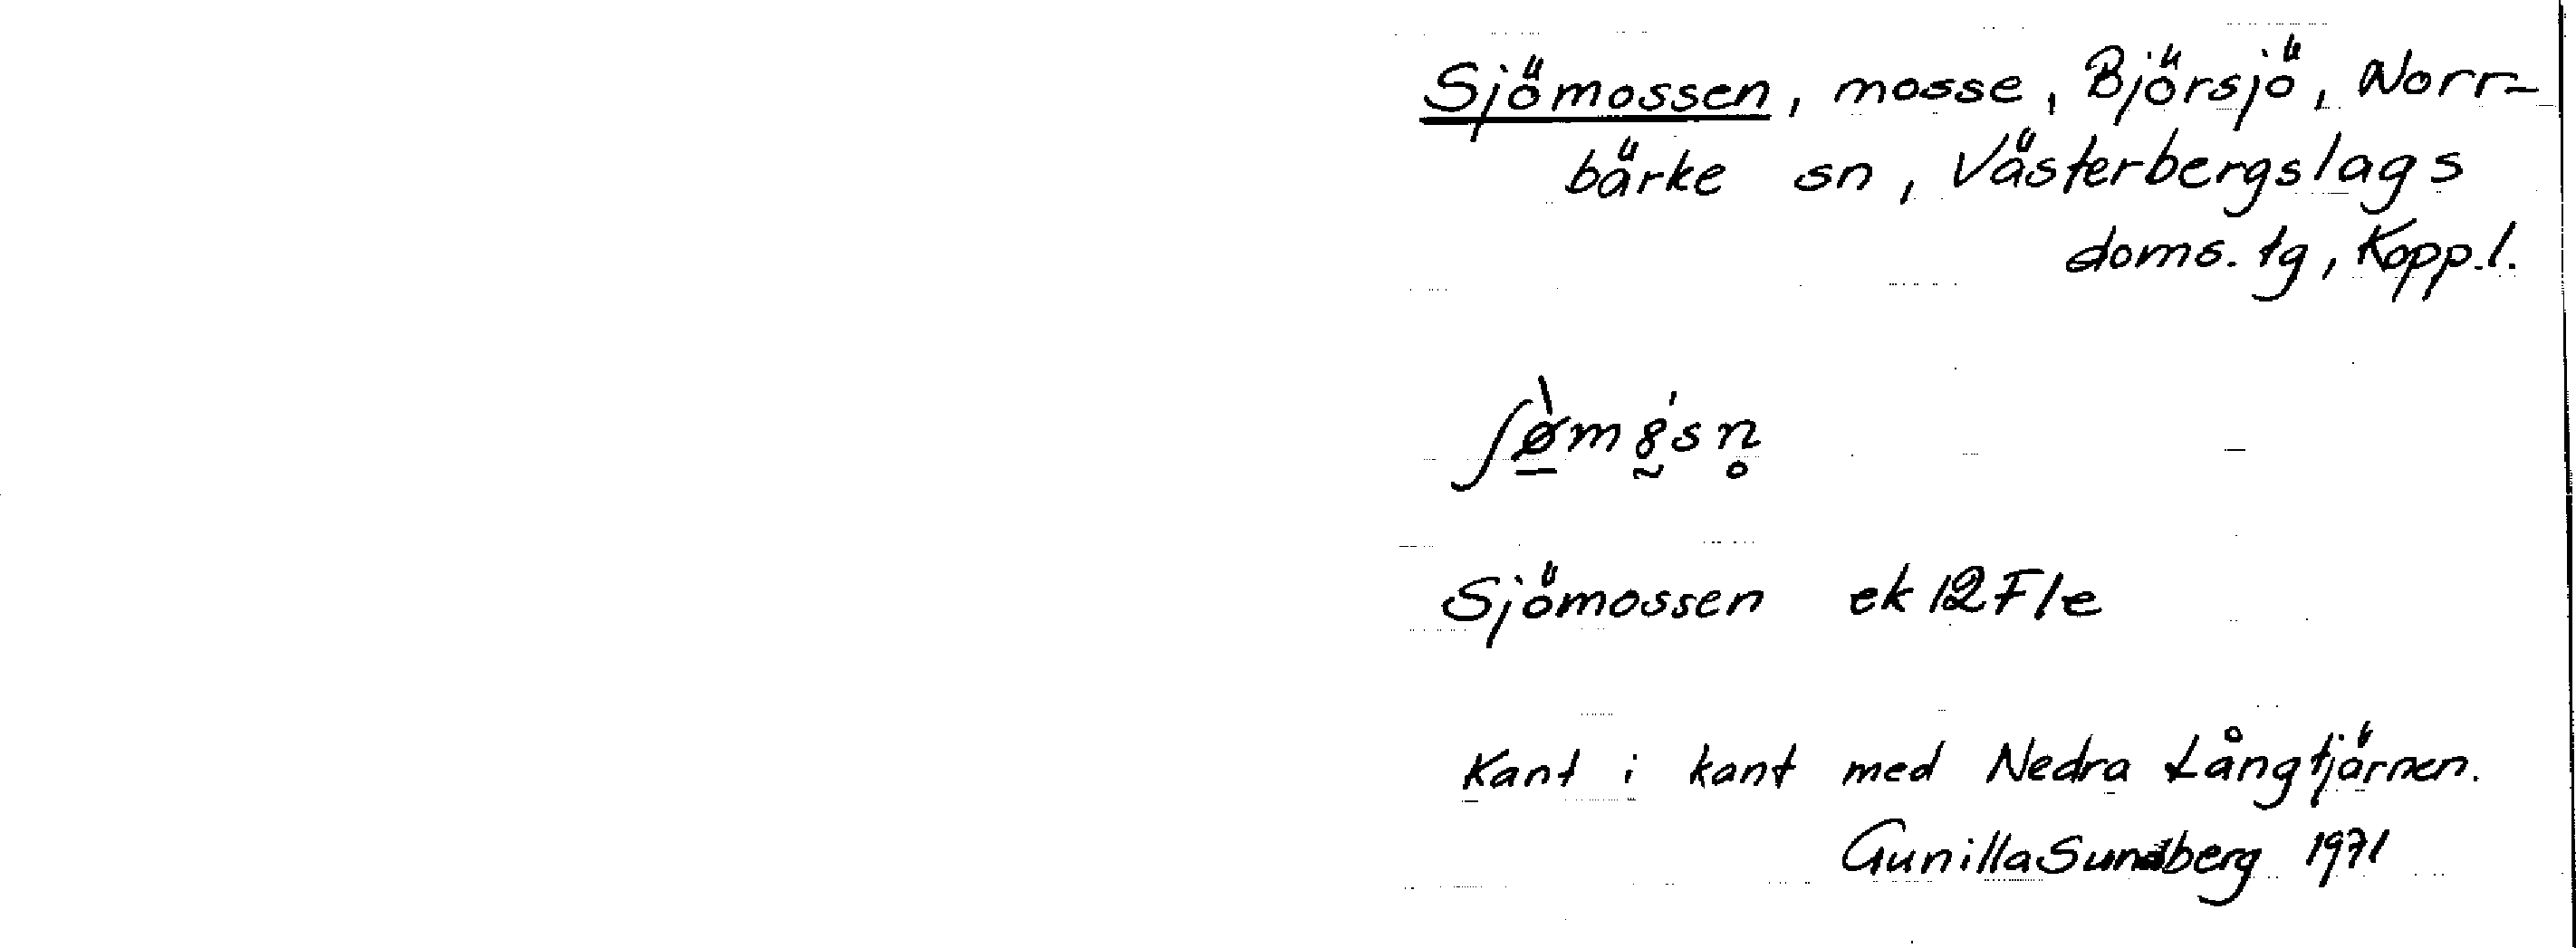 Sjömossen, mosse, Björsjö, Norr-
bärke sn, Västerbergslags
doms. tg, Kopp.l.
ʃø̠̀m8̰́sn̥
Sjömossen ek 12F1e
Kant i kant med Nedra Långtjärnen.
Gunilla Sundberg 1971